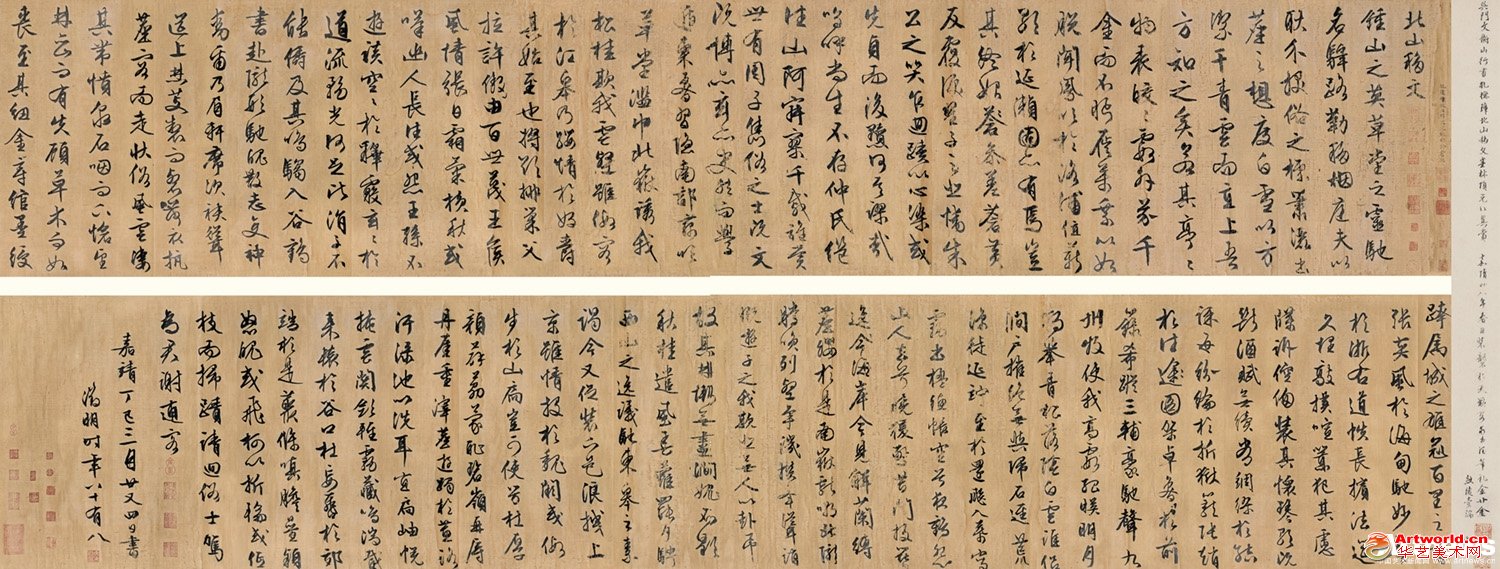 北山移文
鍾山之英草堂之靈馳
煙驛路勒移山庭夫以
耿介拔俗之標蕭灑出
塵之想度白雪以方
潔干青雲而直上吾
方知之矣若其亭亭
物表皎皎霞外芥千
金而不盼屣萬乘以如
脫聞鳳吹於洛浦值薪
歌於延瀨固亦有焉豈
其終始參差蒼黃
反覆淚翟子之悲慟朱
公之哭乍迴跡以心染或
先貞而後黷何其謬哉
嗚呼尚生不存仲氏既
往山阿寂寥千載誰賞
世有周子雋俗之士既文
既博亦玄亦史然而學
遁東魯習隱南郭竊吹
草堂濫巾北嶽誘我
松桂欺我雲壑雖假容
於江皋乃纓情於好爵
其始至也將欲排巢父
拉許傲由百世蔑王侯
風情張日霜氣橫秋或
嘆幽人長往或怨王孫不
遊談空空於釋覈玄玄於
道流務光何足比涓子不
能儔及其鳴騶入谷鶴
書赴隴形馳魄散志變神
動爾乃眉軒席次袂聳
筵上焚芰製而裂荷衣抗
塵容而走狀俗風雲悽
其帶憤泉石咽而下愴望
林巒而有失顧草木而如
喪至其紐金章綰墨綬
跨屬城之雄冠百里之首
張英風於海甸馳妙譽
於浙右道帙長擯法筵
久埋敲撲喧囂犯其慮
牒訴倥傯裝其懷琴歌既
斷酒賦無續常綢繆於結
課每紛綸於折獄籠張趙
於往圖架卓魯於前
籙希蹤三輔豪馳聲九
州牧使我高霞孤映明月
獨舉青松落陰白雲誰侶
澗戶摧絕無與歸石逕荒
涼徒延佇至於還飆入幕寫
霧出楹蕙帳空兮夜鶴怨
山人去兮曉猿驚昔聞投簪
逸海岸今見解蘭縛
塵纓於是南嶽獻嘲北隴
騰笑列壑爭譏攢峰竦誚
慨遊子之我欺悲無人以赴弔
故其林慚無盡澗愧不歇
秋桂遣風春蘿罷月騁
西山之逸議馳東皋之素
謁今又促裝下邑浪拽上
京雖情投於魏闕或假
步於山扃豈可使芳杜厚
顏薜荔蒙恥碧嶺再辱
丹崖重滓塵遊躅於蕙路
汙淥池以洗耳宜扃岫幌
掩雲關斂輕霧藏鳴湍截
來轅於谷口杜妄轡於郊
端於是叢條嗔膽疊穎
怒魄或飛柯以折輪或低
枝而掃跡請迴俗士駕
為君謝逋客
嘉靖丁巳三月廿又四日書
徵明時年八十有八
Artworld.cn
华艺美术网